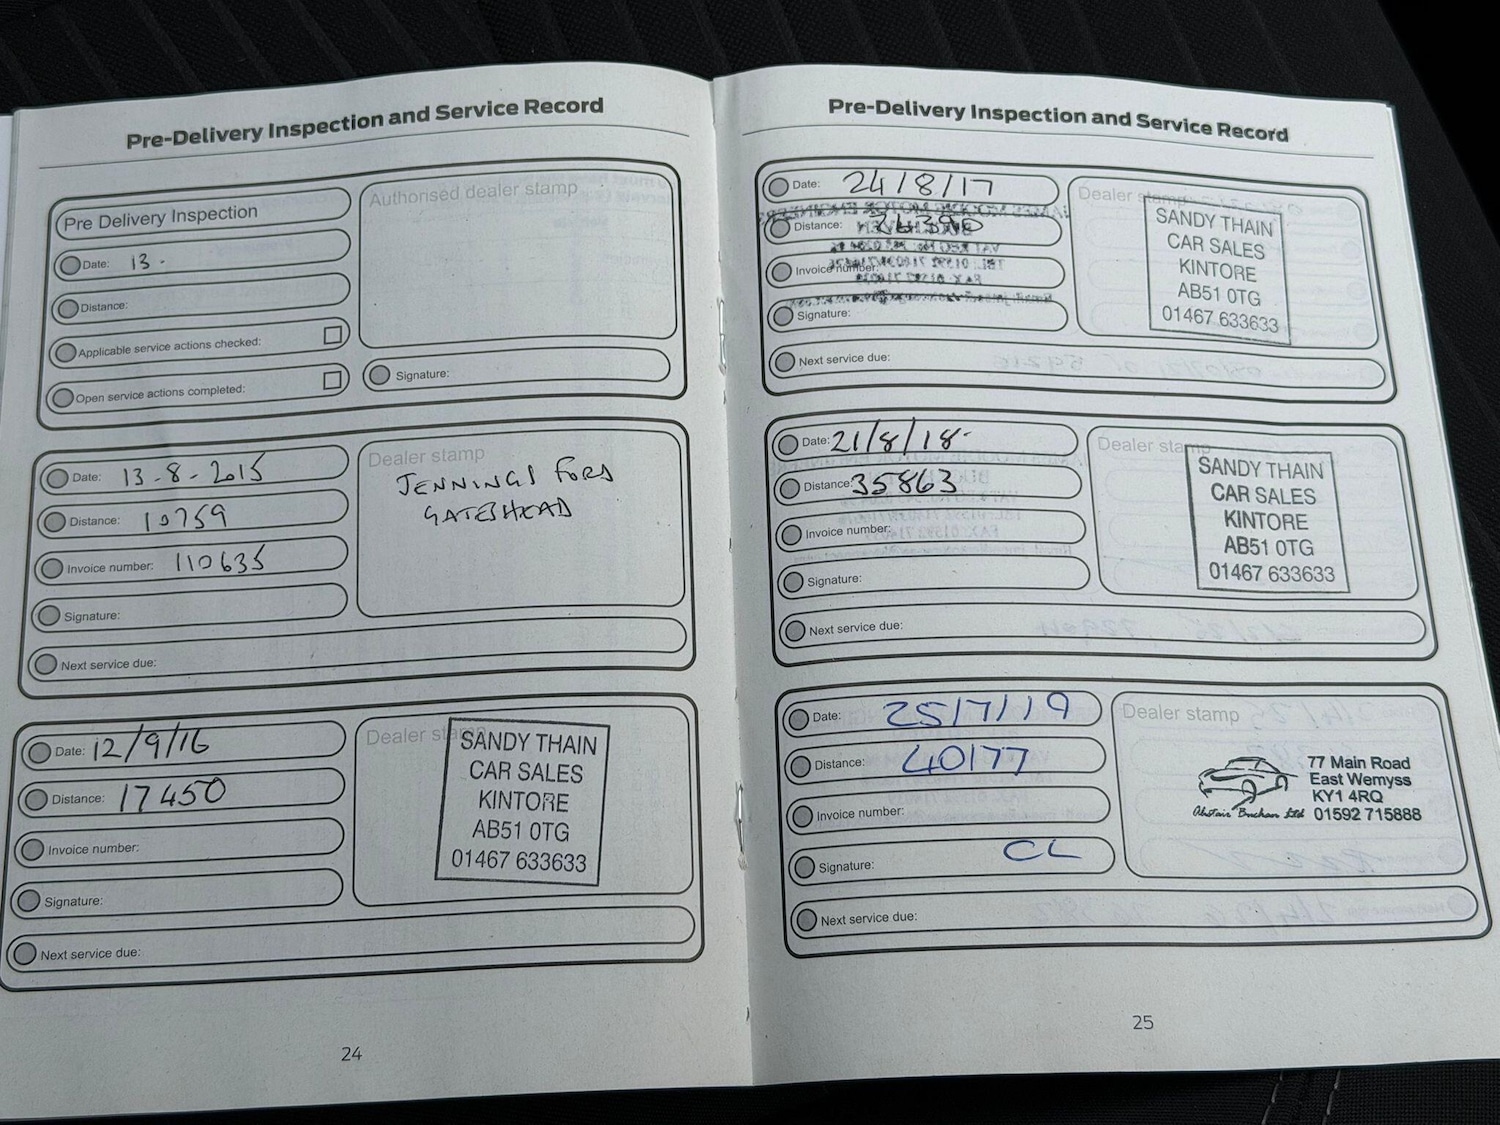 Pre-Delivery Inspection and Service Record
Pre Delivery Inspection
Date: 13 -
Distance:
Applicable service actions checked:
Open service actions completed:
Authorised dealer stamp
Signature:
Date: 13-8-2015
Distance: 10759
Invoice number: 110635
Signature:
Next service due:
Dealer stamp
JENNINGS FORD
GATESHEAD
Date: 12/9/16
Distance: 17450
Invoice number:
Signature:
Next service due:
Dealer stamp
SANDY THAIN
CAR SALES
KINTORE
AB51 0TG
01467 633633
24
Pre-Delivery Inspection and Service Record
Date: 24/8/17
Distance:
Invoice number:
Signature:
Next service due:
Dealer stamp
SANDY THAIN
CAR SALES
KINTORE
AB51 0TG
01467 633633
Date: 21/8/18-
Distance: 35863
Invoice number:
Signature:
Next service due:
Dealer stamp
SANDY THAIN
CAR SALES
KINTORE
AB51 0TG
01467 633633
Date: 25/7/19
Distance: 40177
Invoice number:
Signature: CL
Next service due:
Dealer stamp
Alistair Buchan Ltd
77 Main Road
East Wemyss
KY1 4RQ
01592 715888
25